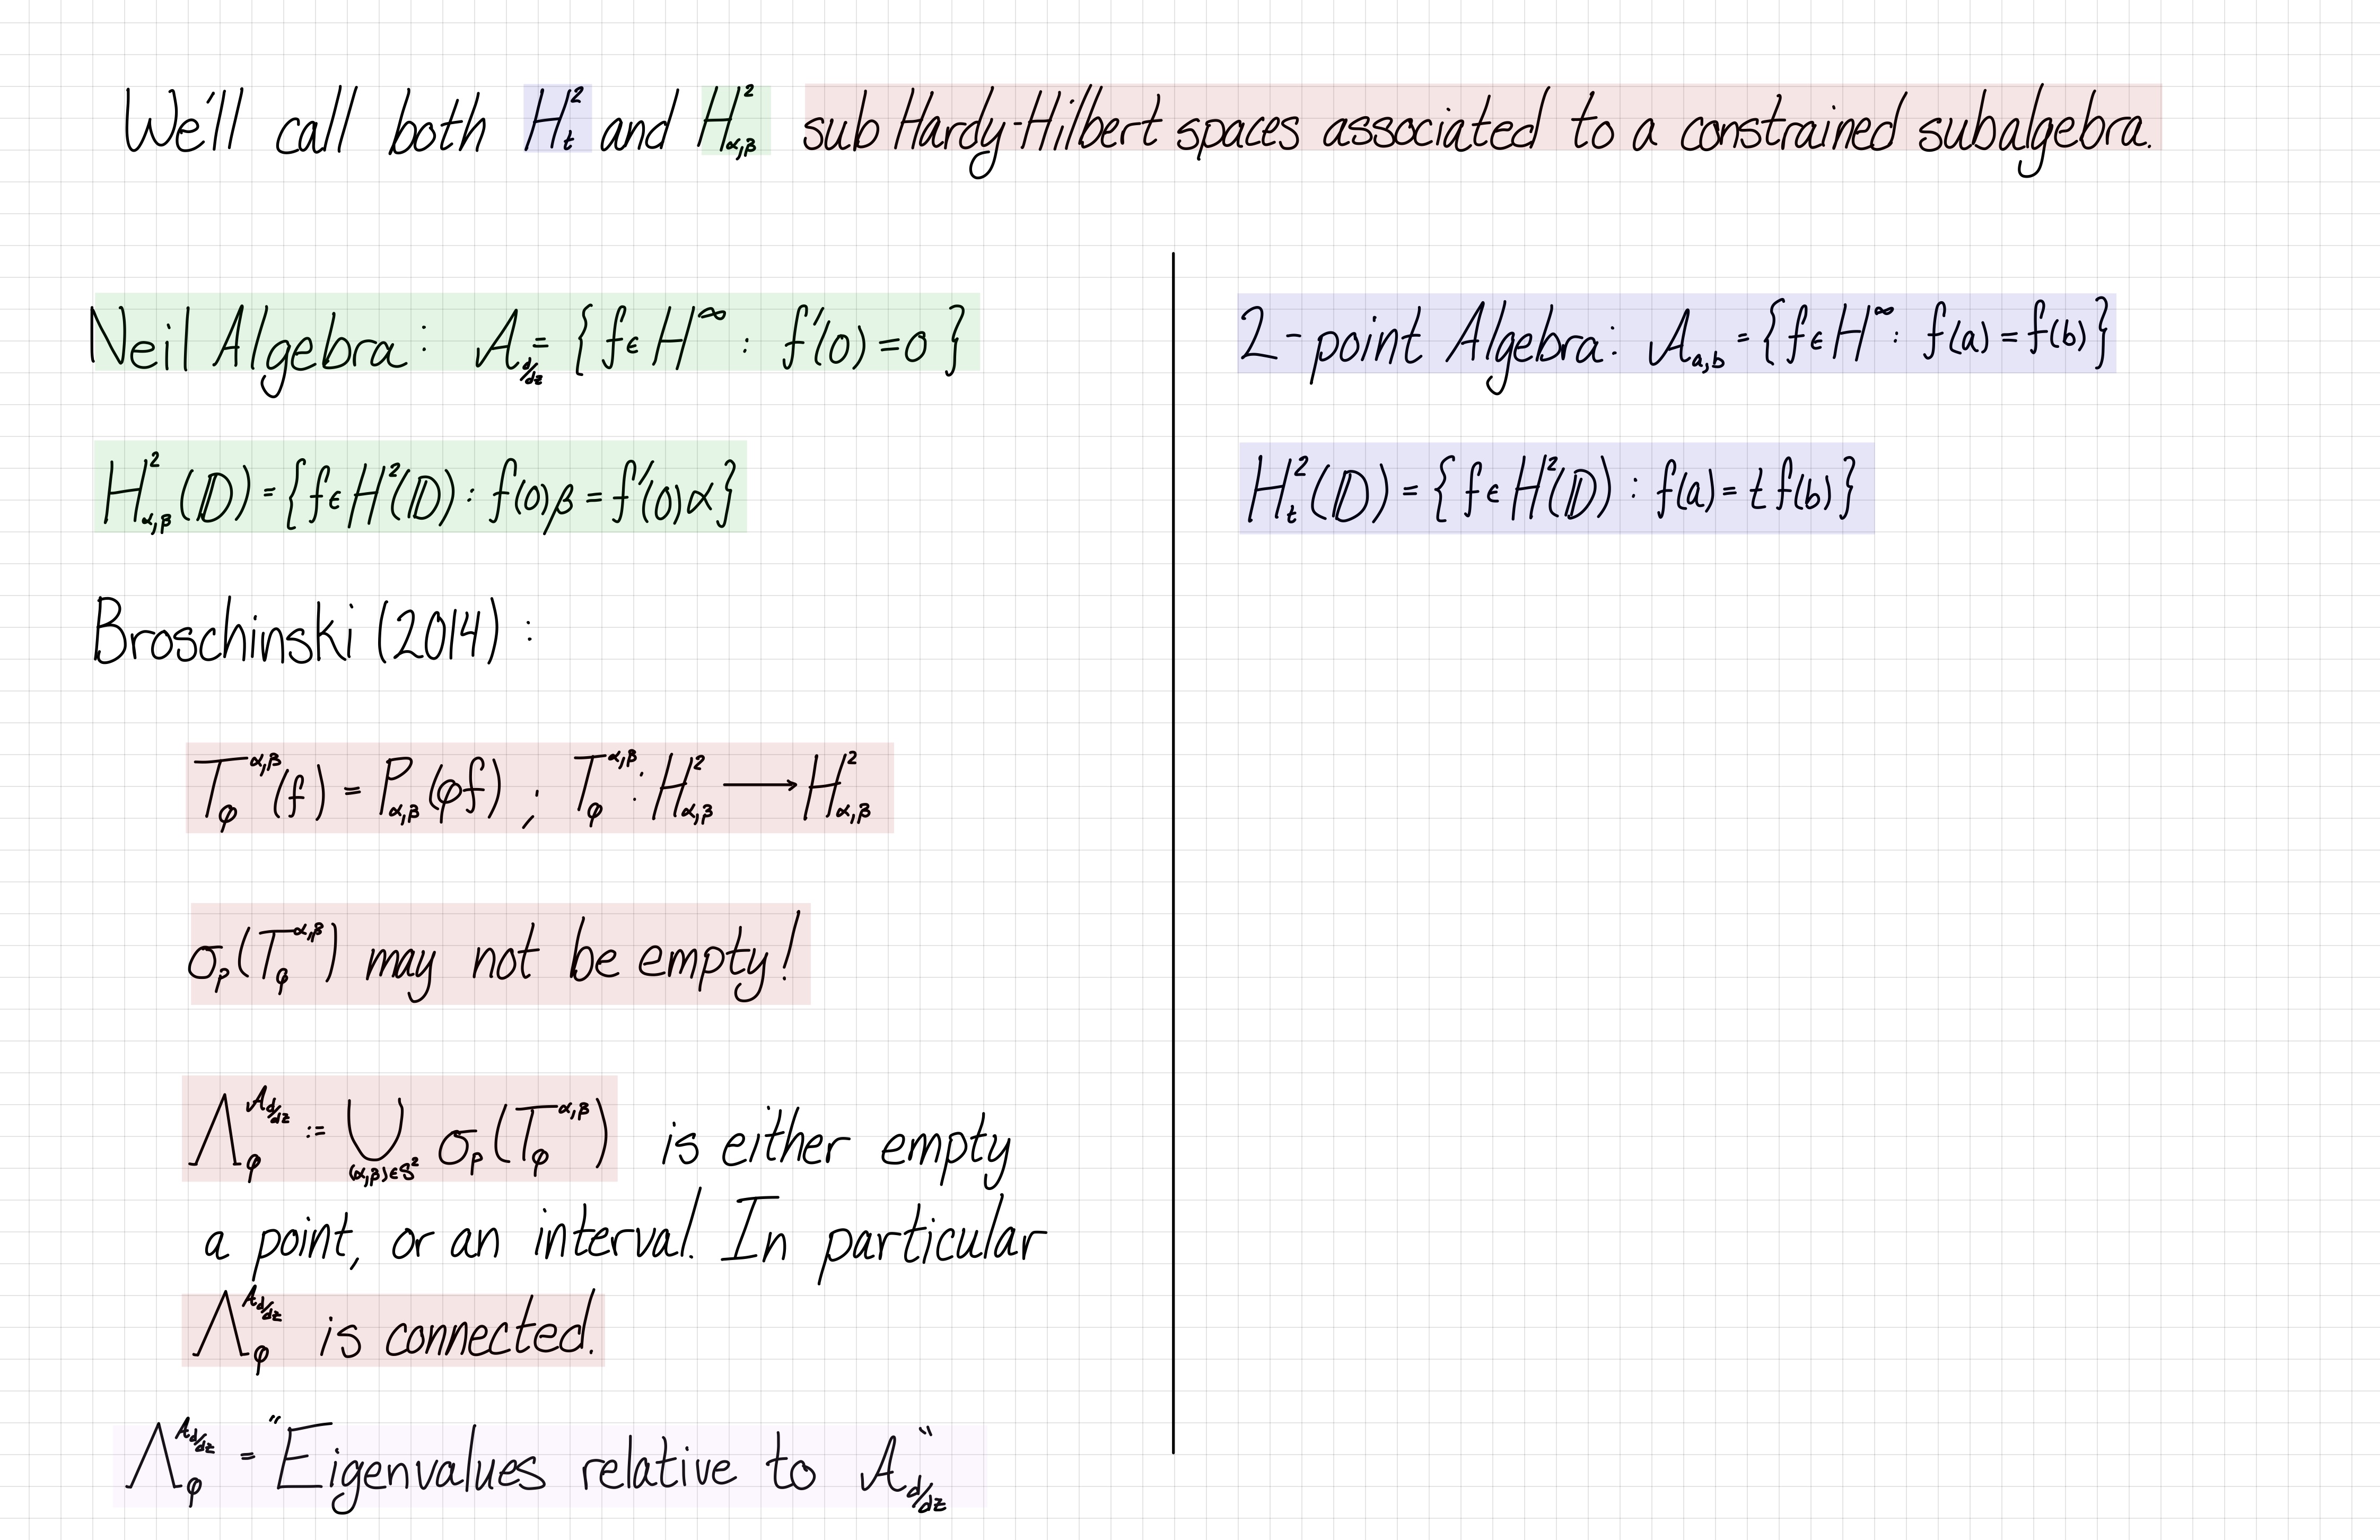 We'll call both H²_t and H²_{α,β} sub Hardy-Hilbert spaces associated to a constrained subalgebra.
Neil Algebra: 𝒜_{d/dz} = {f ϵ H^∞ : f'(0) = 0}
H²_{α,β}(𝔻) = {f ϵ H²(𝔻) : f(0)β = f'(0)α}
Broschinski (2014) :
T_φ^{α,β}(f) = P_{α,β}(φf) ; T_φ^{α,β} : H²_{α,β} ⟶ H²_{α,β}
σ_p(T_φ^{α,β}) may not be empty!
Λ_φ^{𝒜_{d/dz}} := ⋃_{(α,β)ϵ𝕊²} σ_p(T_φ^{α,β}) is either empty
a point, or an interval. In particular
Λ_φ^{𝒜_{d/dz}} is connected.
Λ_φ^{𝒜_{d/dz}} = "Eigenvalues relative to 𝒜_{d/dz}"
2-point Algebra: 𝒜_{a,b} = {f ϵ H^∞ : f(a) = f(b)}
H²_t(𝔻) = {f ϵ H²(𝔻) : f(a) = t f(b)}